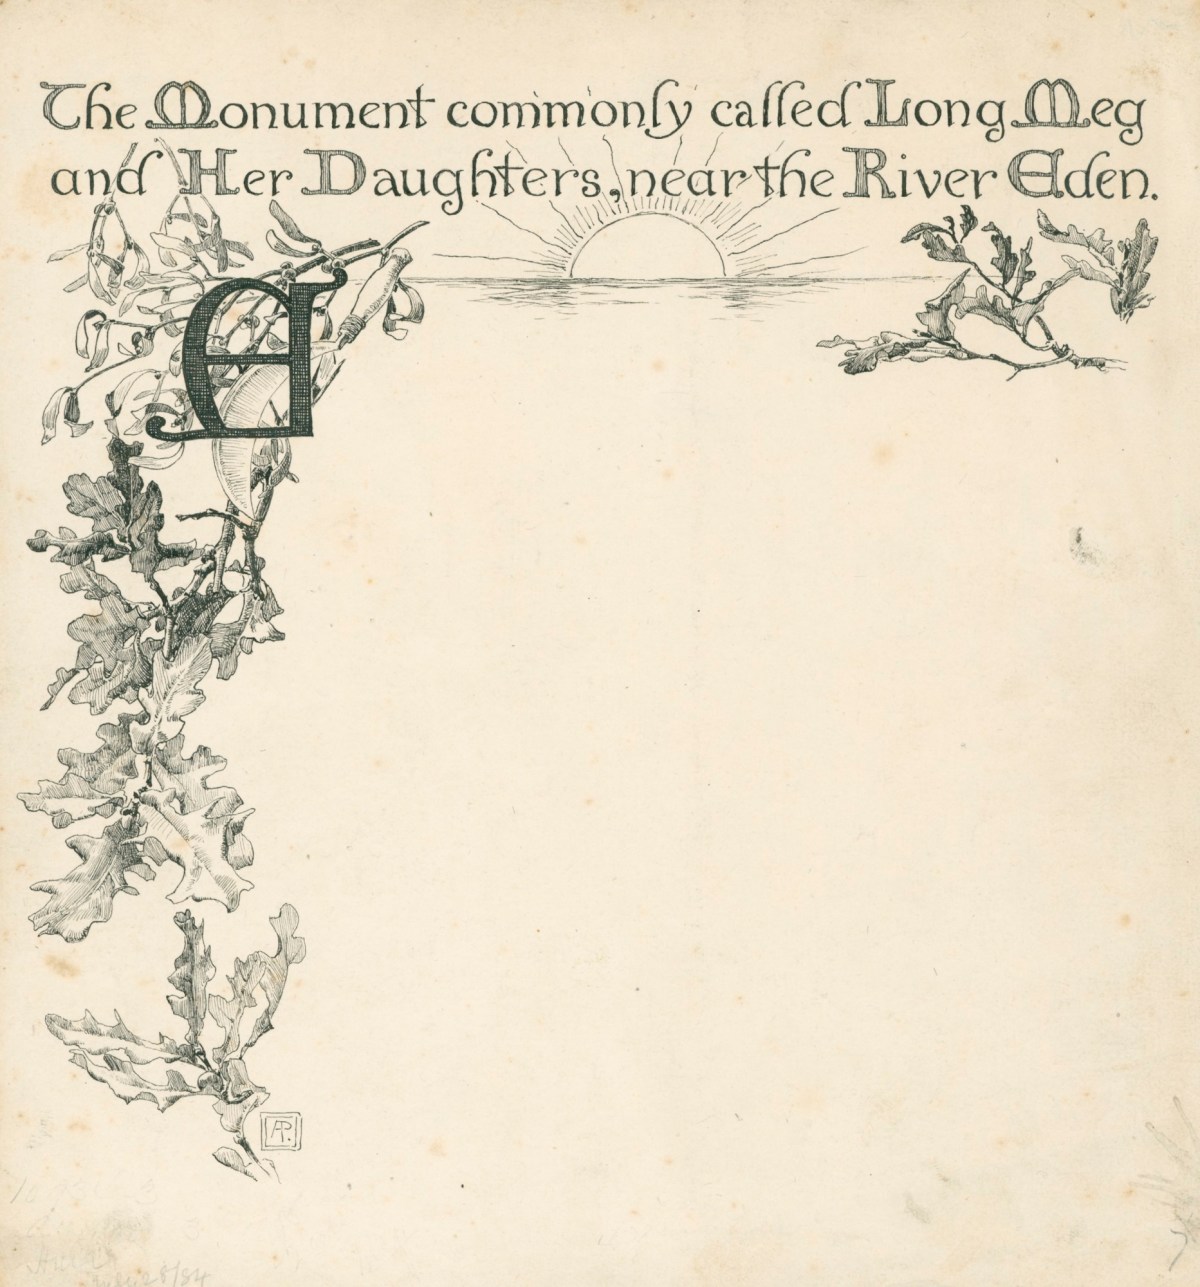 The Monument commonly called Long Meg
and Her Daughters, near the River Eden.
A
AP.